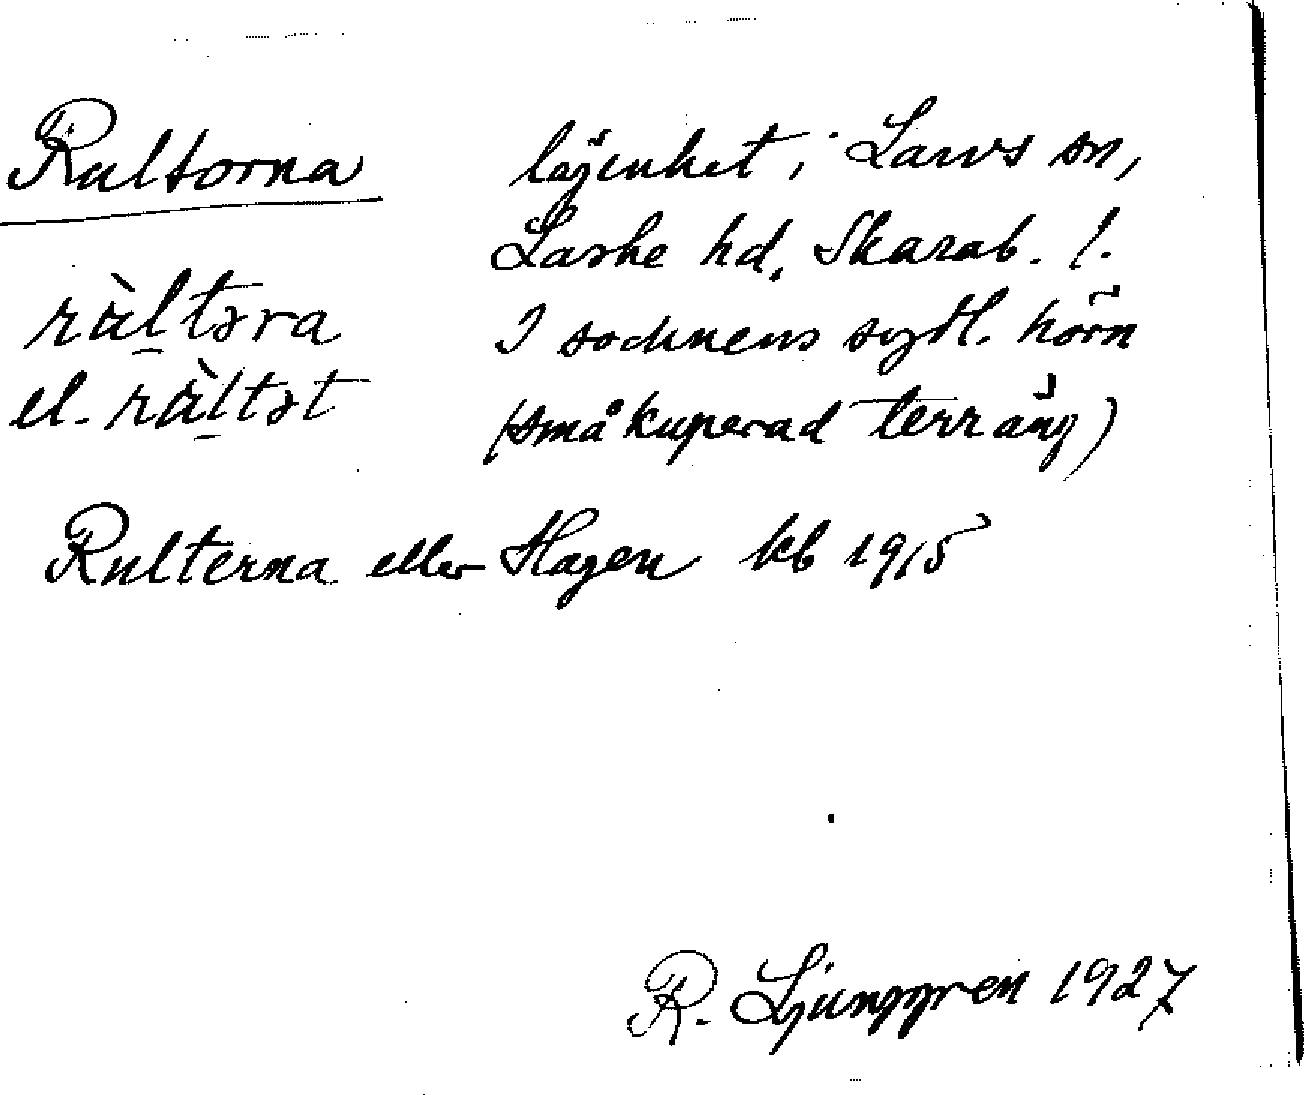 Rultorna lägenhet i Larvs sn,
Laske hd, Skarab. l.
ràltəra I socknens sydl. hörn
el. ràltət (småkuperad terräng)
Rulterna eller Hagen kb 1915
R. Ljunggren 1927